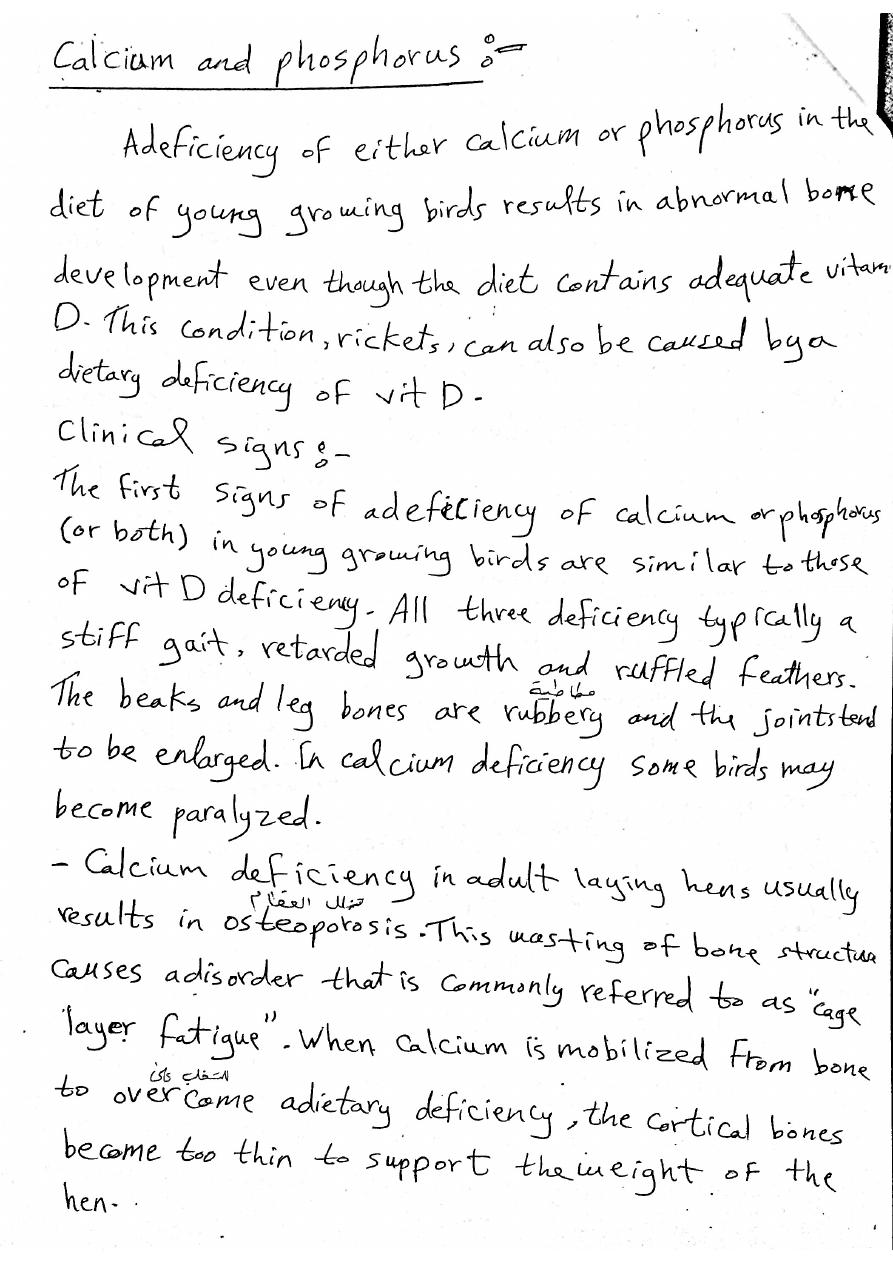 Calcium and phosphorus :-
Adeficiency of either calcium or phosphorus in the
diet of young growing birds results in abnormal bone
development even though the diet contains adequate vitam
D. This condition, rickets, can also be caused by a
dietary deficiency of vit D.
Clinical signs :-
The first signs of adeficiency of calcium or phosphorus
(or both) in young growing birds are similar to those
of vit D deficiency. All three deficiency typically a
stiff gait, retarded growth and ruffled feathers.
مطاطية
The beaks and leg bones are rubbery and the joints tend
to be enlarged. In calcium deficiency some birds may
become paralyzed.
- Calcium deficiency in adult laying hens usually
results in osteoporosis. This wasting of bone structure
causes adisorder that is commonly referred to as "cage
layer fatigue". When calcium is mobilized from bone
to overcome adietary deficiency, the cortical bones
become too thin to support the weight of the
hen.